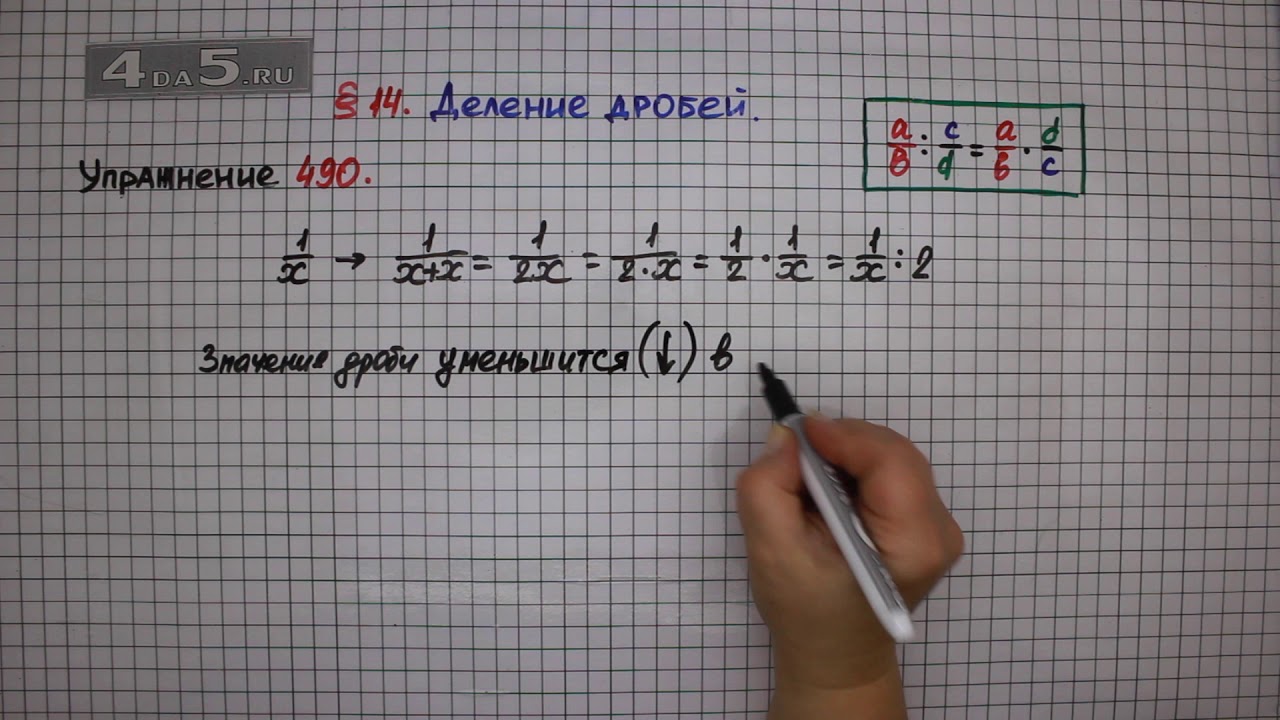 4DA5.RU
§ 14. Деление дробей.
a/b : c/d = a/b · d/c
Упражнение 490.
1/x → 1/(x+x) = 1/(2x) = 1/(2·x) = 1/2 · 1/x = 1/x : 2
Значение дроби уменьшится (↓) в